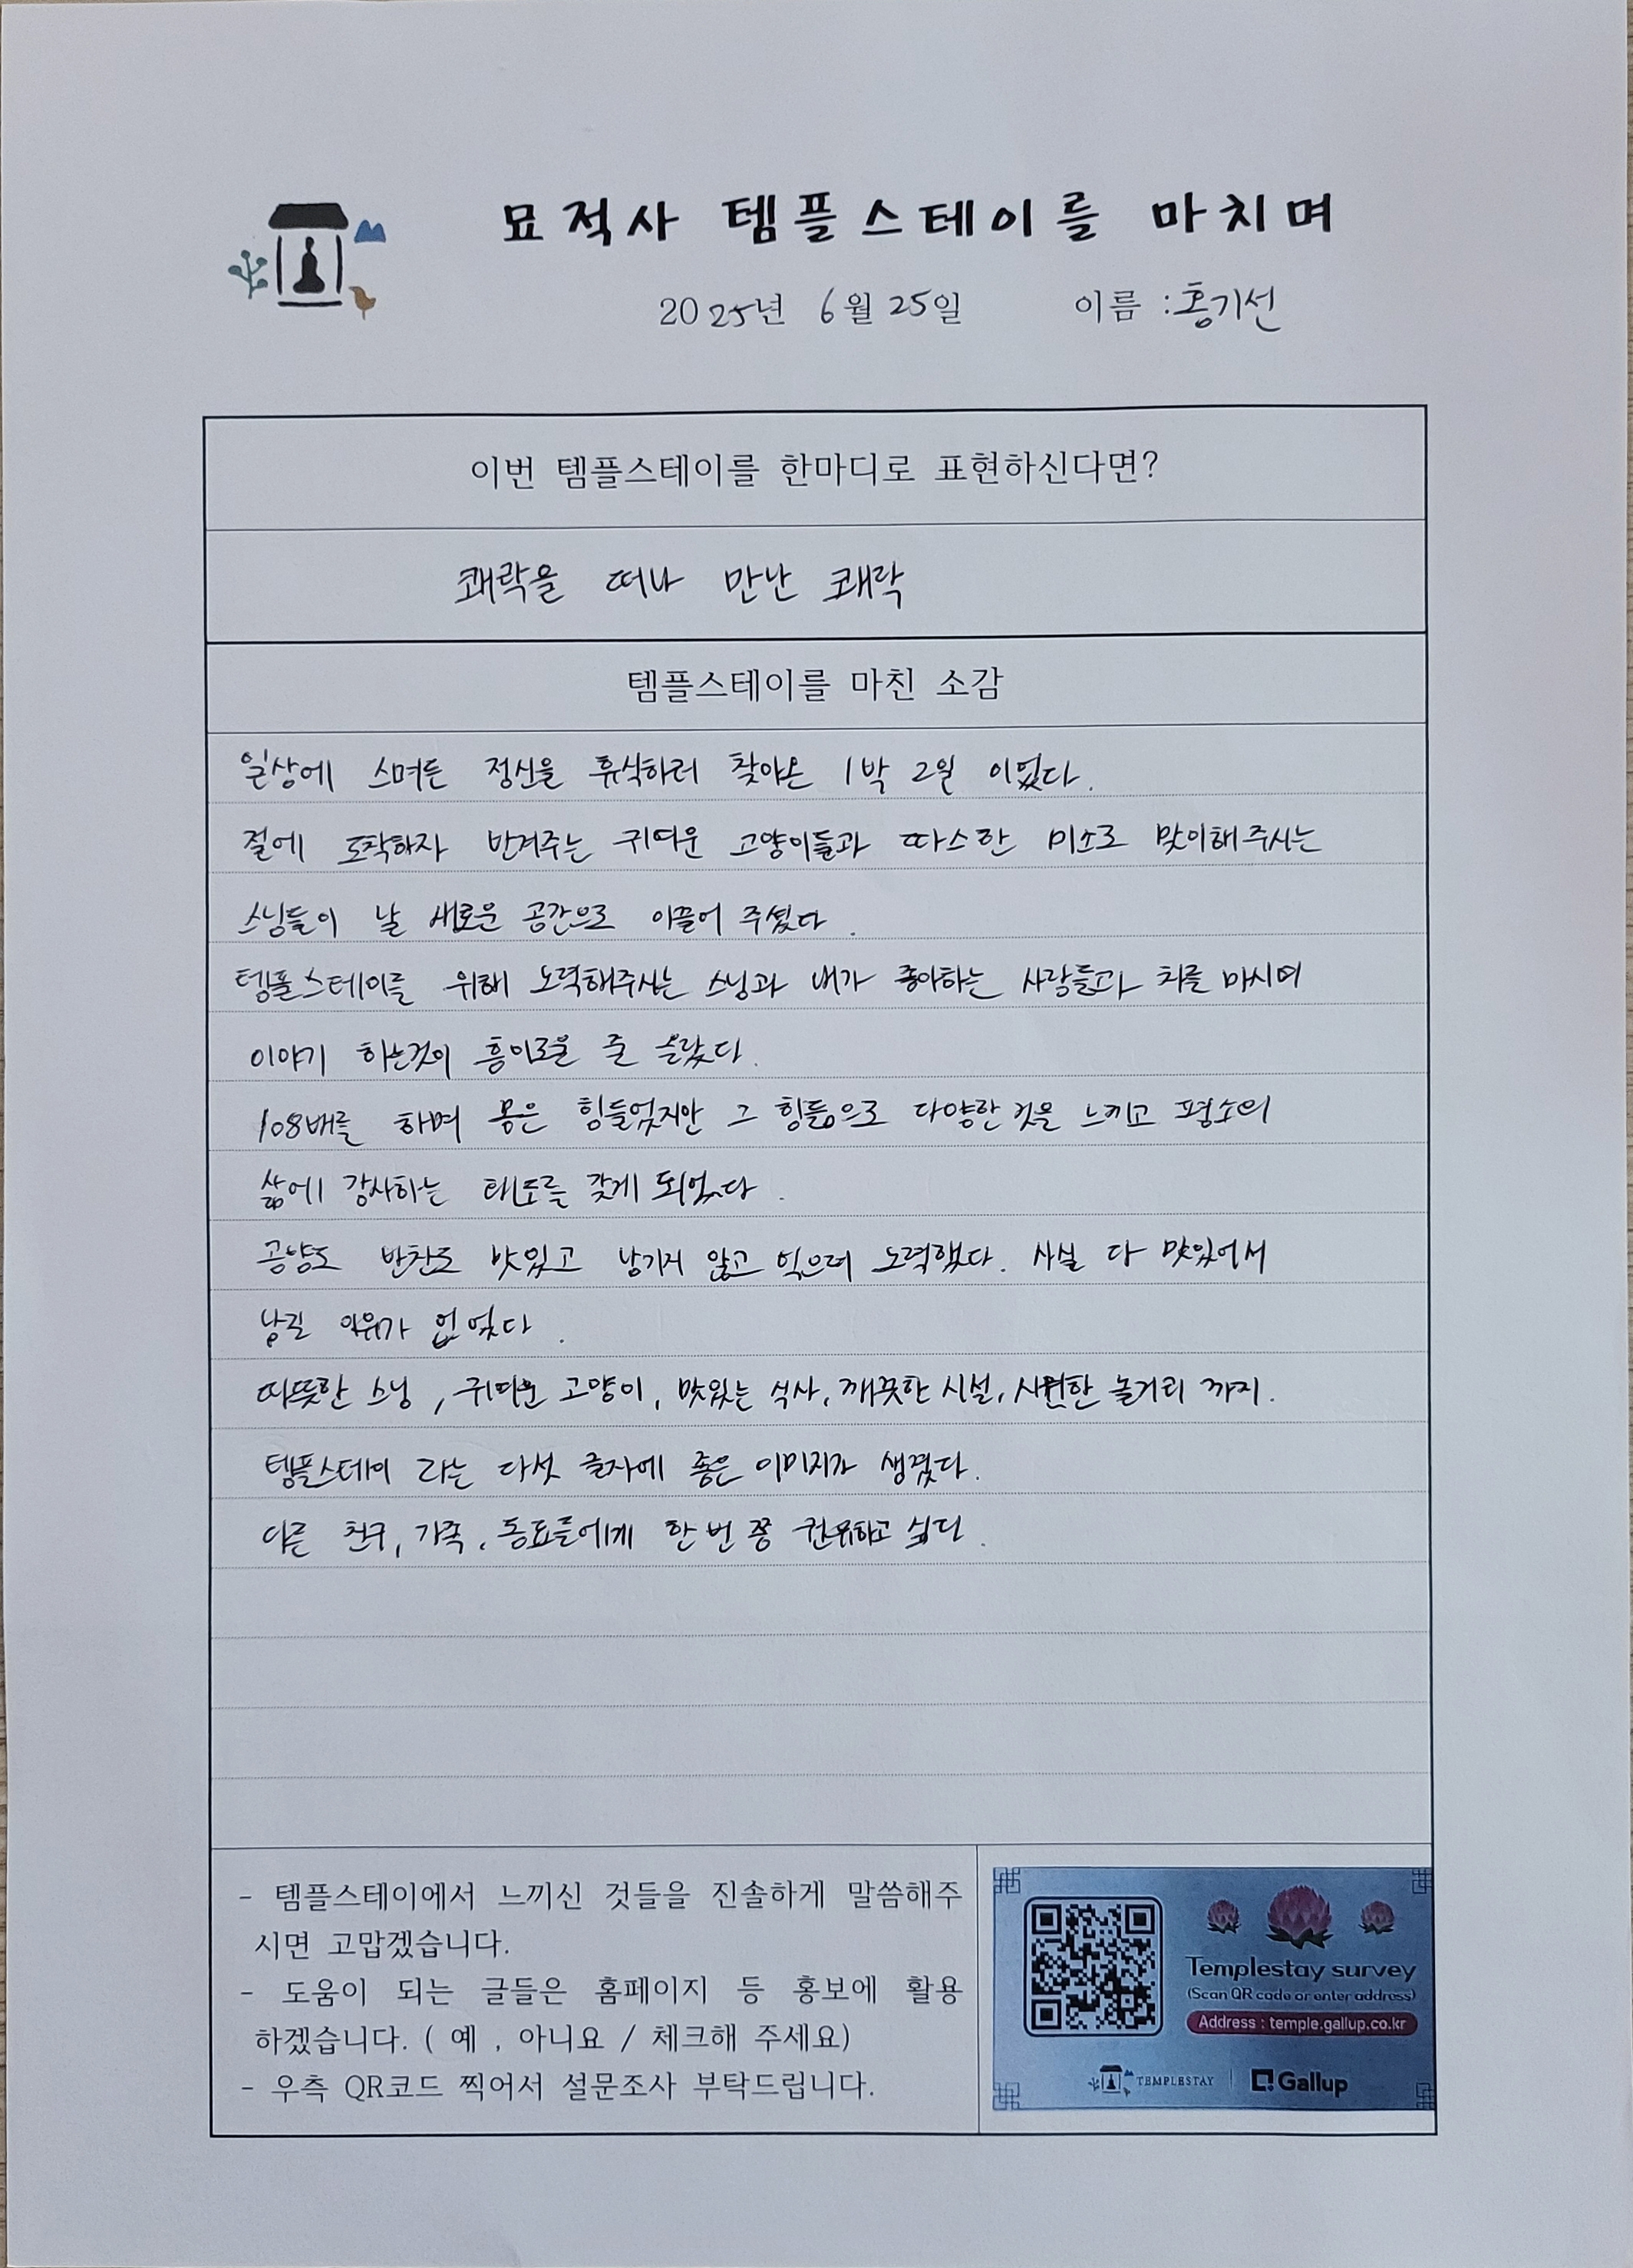 묘적사 템플스테이를 마치며
2025년 6월 25일 이름 : 홍기선
이번 템플스테이를 한마디로 표현하신다면?
쾌락을 떠나 만난 쾌락
템플스테이를 마친 소감
일상에 스며든 정신을 휴식하러 찾아온 1박 2일 이었다.
절에 도착하자 반겨주는 귀여운 고양이들과 따스한 미소로 맞이해주시는
스님들이 날 새로운 공간으로 이끌어 주셨다.
템플스테이를 위해 노력해주시는 스님과 내가 좋아하는 사람들과 차를 마시며
이야기 하는것이 흥미로울 줄 몰랐다.
108배를 하며 몸은 힘들었지만 그 힘듦으로 다양한 것을 느끼고 평소의
삶에 감사하는 태도를 갖게 되었다.
공양도 반찬도 맛있고 남기지 않고 먹으려 노력했다. 사실 다 맛있어서
남길 이유가 없었다.
따뜻한 스님, 귀여운 고양이, 맛있는 식사, 깨끗한 시설, 시원한 놀거리 까지.
템플스테이 라는 다섯 글자에 좋은 이미지가 생겼다.
다른 친구, 가족, 동료들에게 한 번 쯤 권유하고 싶다.
- 템플스테이에서 느끼신 것들을 진솔하게 말씀해주
시면 고맙겠습니다.
- 도움이 되는 글들은 홈페이지 등 홍보에 활용
하겠습니다. ( 예 , 아니요 / 체크해 주세요)
- 우측 QR코드 찍어서 설문조사 부탁드립니다.
Templestay survey
(Scan QR code or enter address)
Address : temple.gallup.co.kr
TEMPLESTAY Gallup